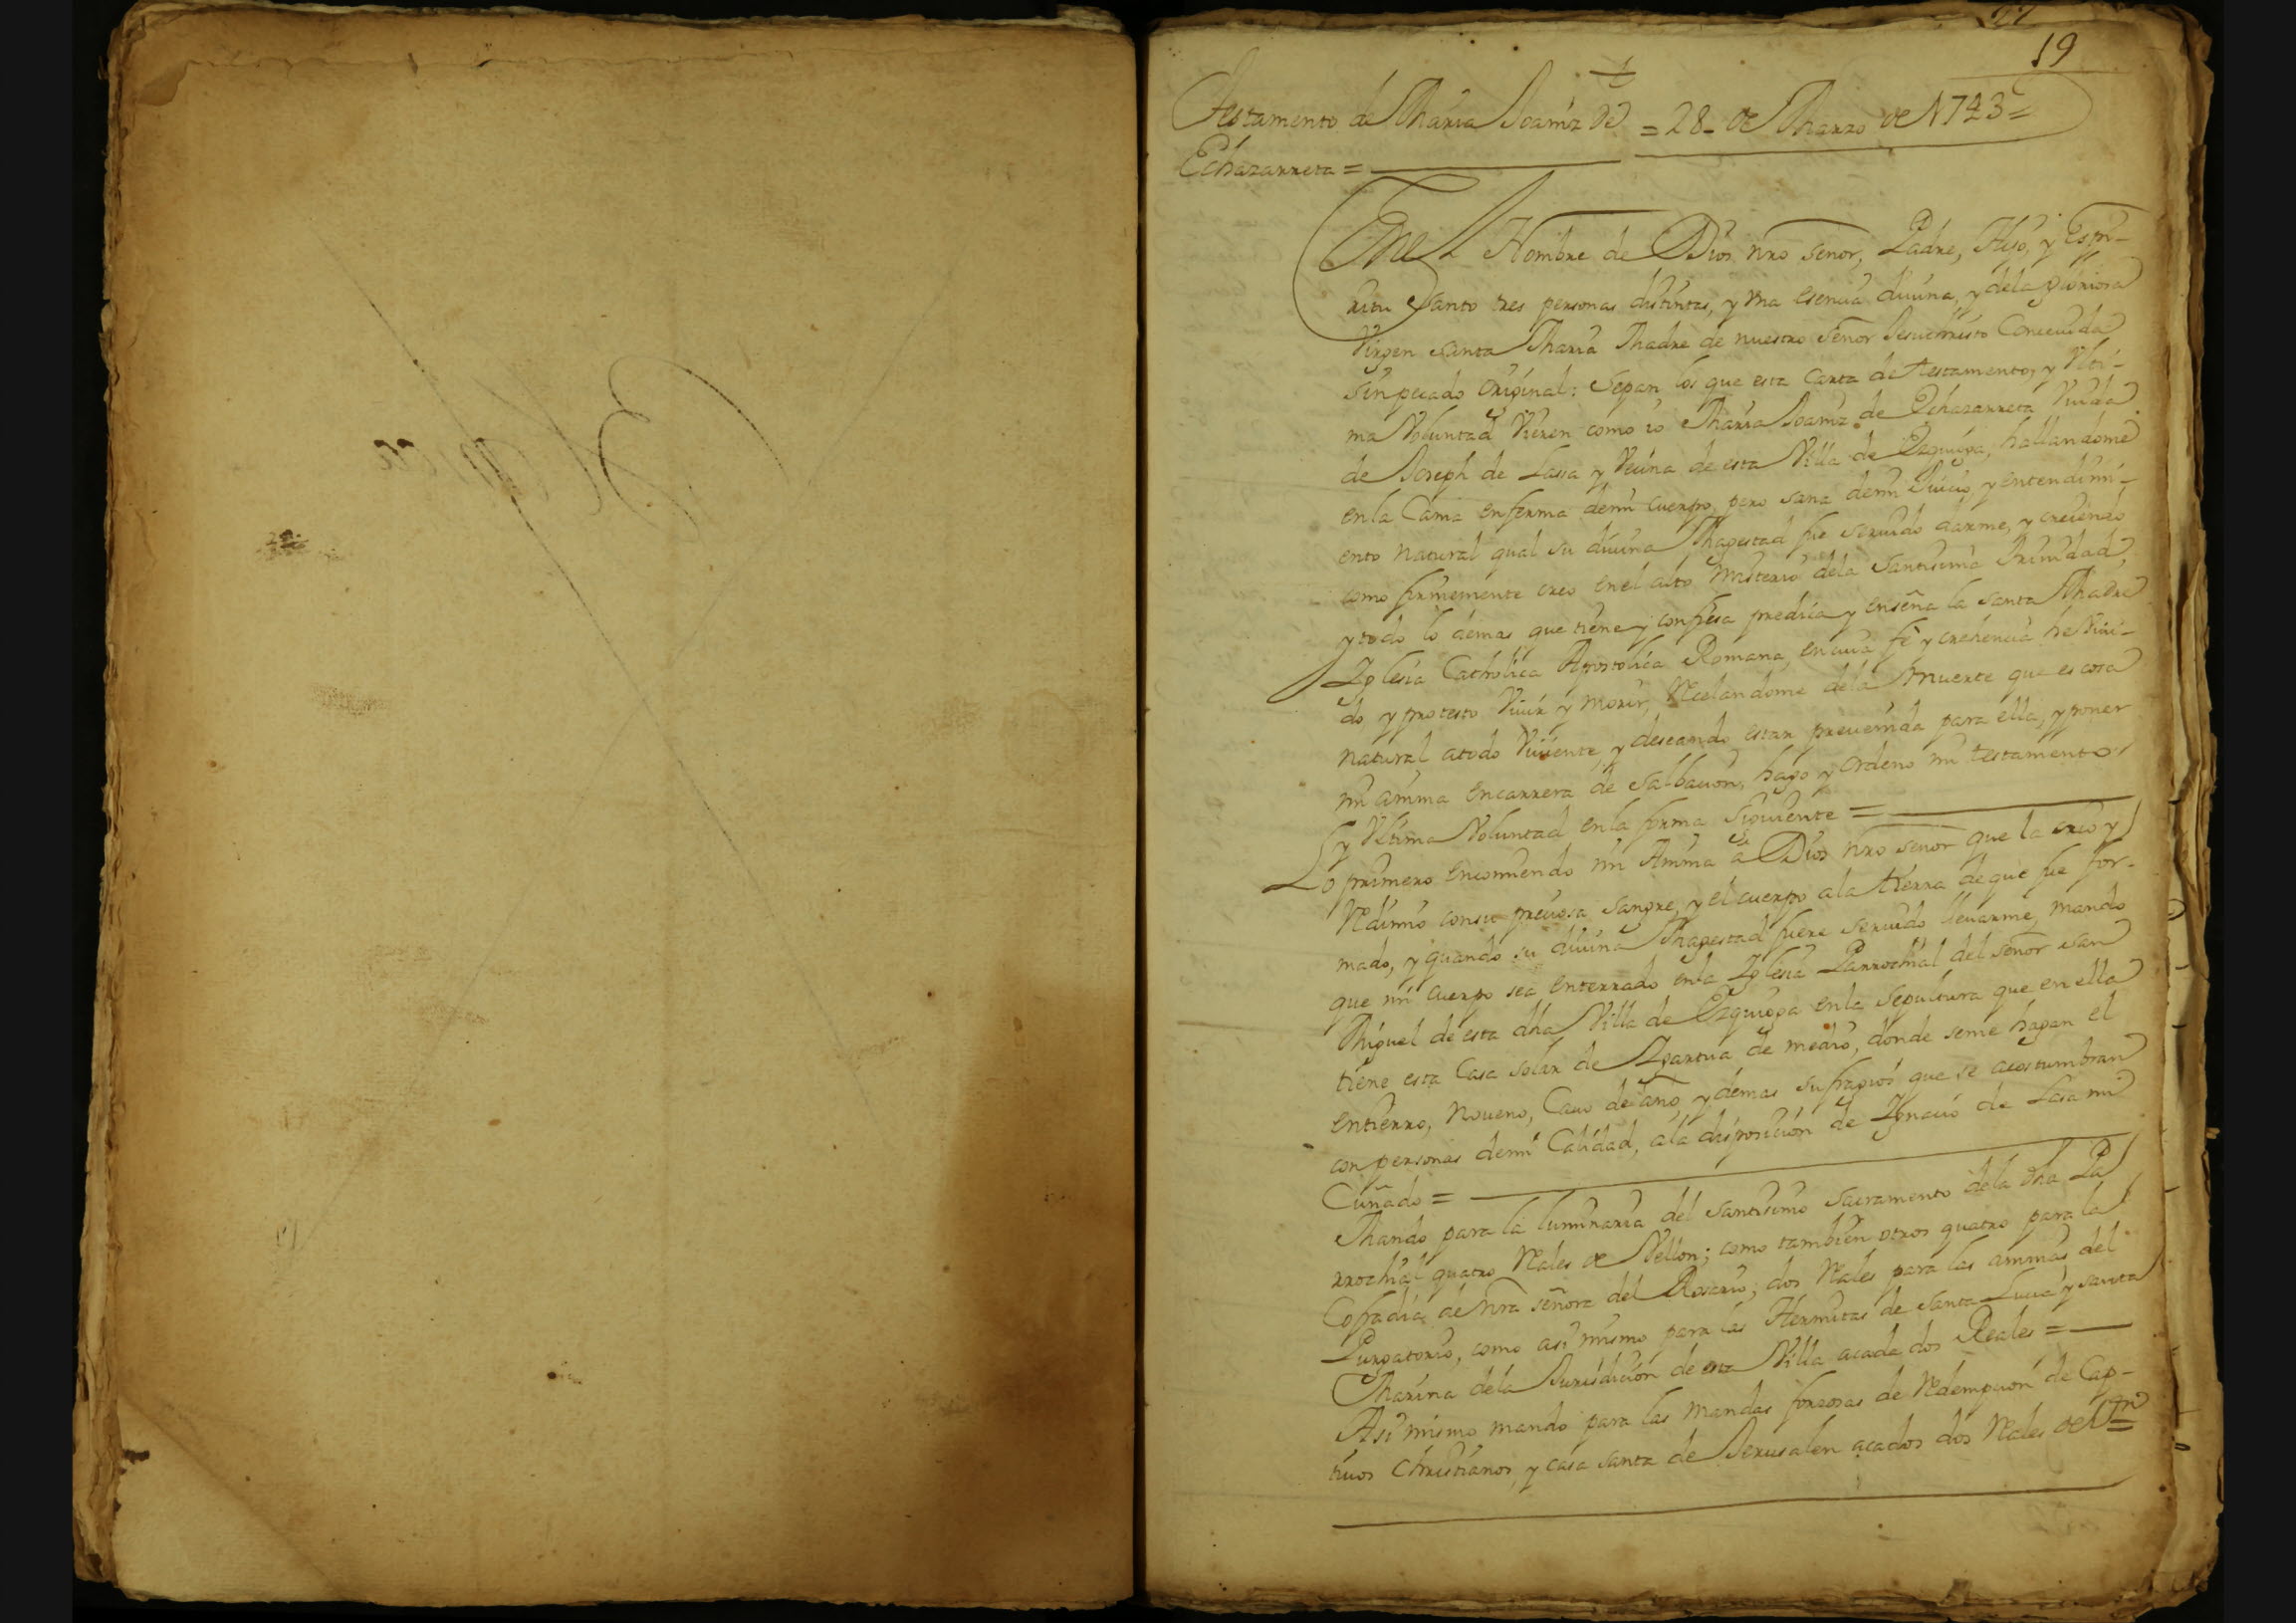 19
Testamento de Maria Joaniz de = 28- de Marzo de 1743=
Echazarreta =
En el Nombre de Dios nro señor, Padre, Hijo, y Espi-
ritu Santo tres personas distintas, y vna esencia diuina, y dela gloriosa
Virgen santa Maria Madre de nuestro Señor Jesuchristo Conceuida
sin pecado original: Sepan los que esta Carta de testamento, y Vlti-
ma Voluntad Vieren como io Maria Joaniz de Echazarreta Viuda
de Joseph de Lassa y Vecina de esta Villa de Ezquioga, hallandome
en la Cama enferma demi cuerpo, pero sana demi Juicio, y entendimi-
ento natural qual su diuina Magestad fue seruido darme, y creiendo
como firmemente creo en el alto misterio dela Santisima Trinidad,
y todo lo demas que tiene y confiesa predica y enseña la santa Madre
Iglesia Catholica Apostolica Romana, en cuia fe y crehencia he Viui-
do, y protesto Viuir y morir, Recelandome dela muerte que es cosa
natural a todo Viuiente, y deseando estar preuenida para ella, y poner
mi anima en carrera de salbacion, hago y ordeno mi testamento
y Vltima Voluntad en la forma siguiente =
Lo primero encomiendo mi Anima a Dios nro señor que la creo y
Redimio con su preciosa sangre, y el cuerpo a la tierra de que fue for-
mado, y quando su diuina Magestad fuere seruido lleuarme, mando
que mi cuerpo sea enterrado en la Iglesia Parrochial del señor san
Miguel de esta dha Villa de Ezquioga en la sepultura que en ella
tiene esta Casa solar de Igartua de medio, donde seme hagan el
entierro, noueno, Cauo de año, y demas sufragios que se acostumbran
con personas demi Calidad, ala disposicion de Ignacio de Lasa mi
Cuñado =
Mando para la luminaria del santisimo sacramento dela dha Pa
rrochial quatro Reales de Vellon; como tambien otros quatro para la
Cofradia de nra señora del Rosario; dos Reales para las animas del
Purgatorio, como asi mismo para las Hermitas de Santa Lucia y santa
Marina dela Jurisdicion de esta Villa acada dos Reales =
Asi mismo mando para las mandas forzosas de Redempcion de Cap-
tiuos christianos, y casa santa de Jerusalen acados dos Reales de Vn =